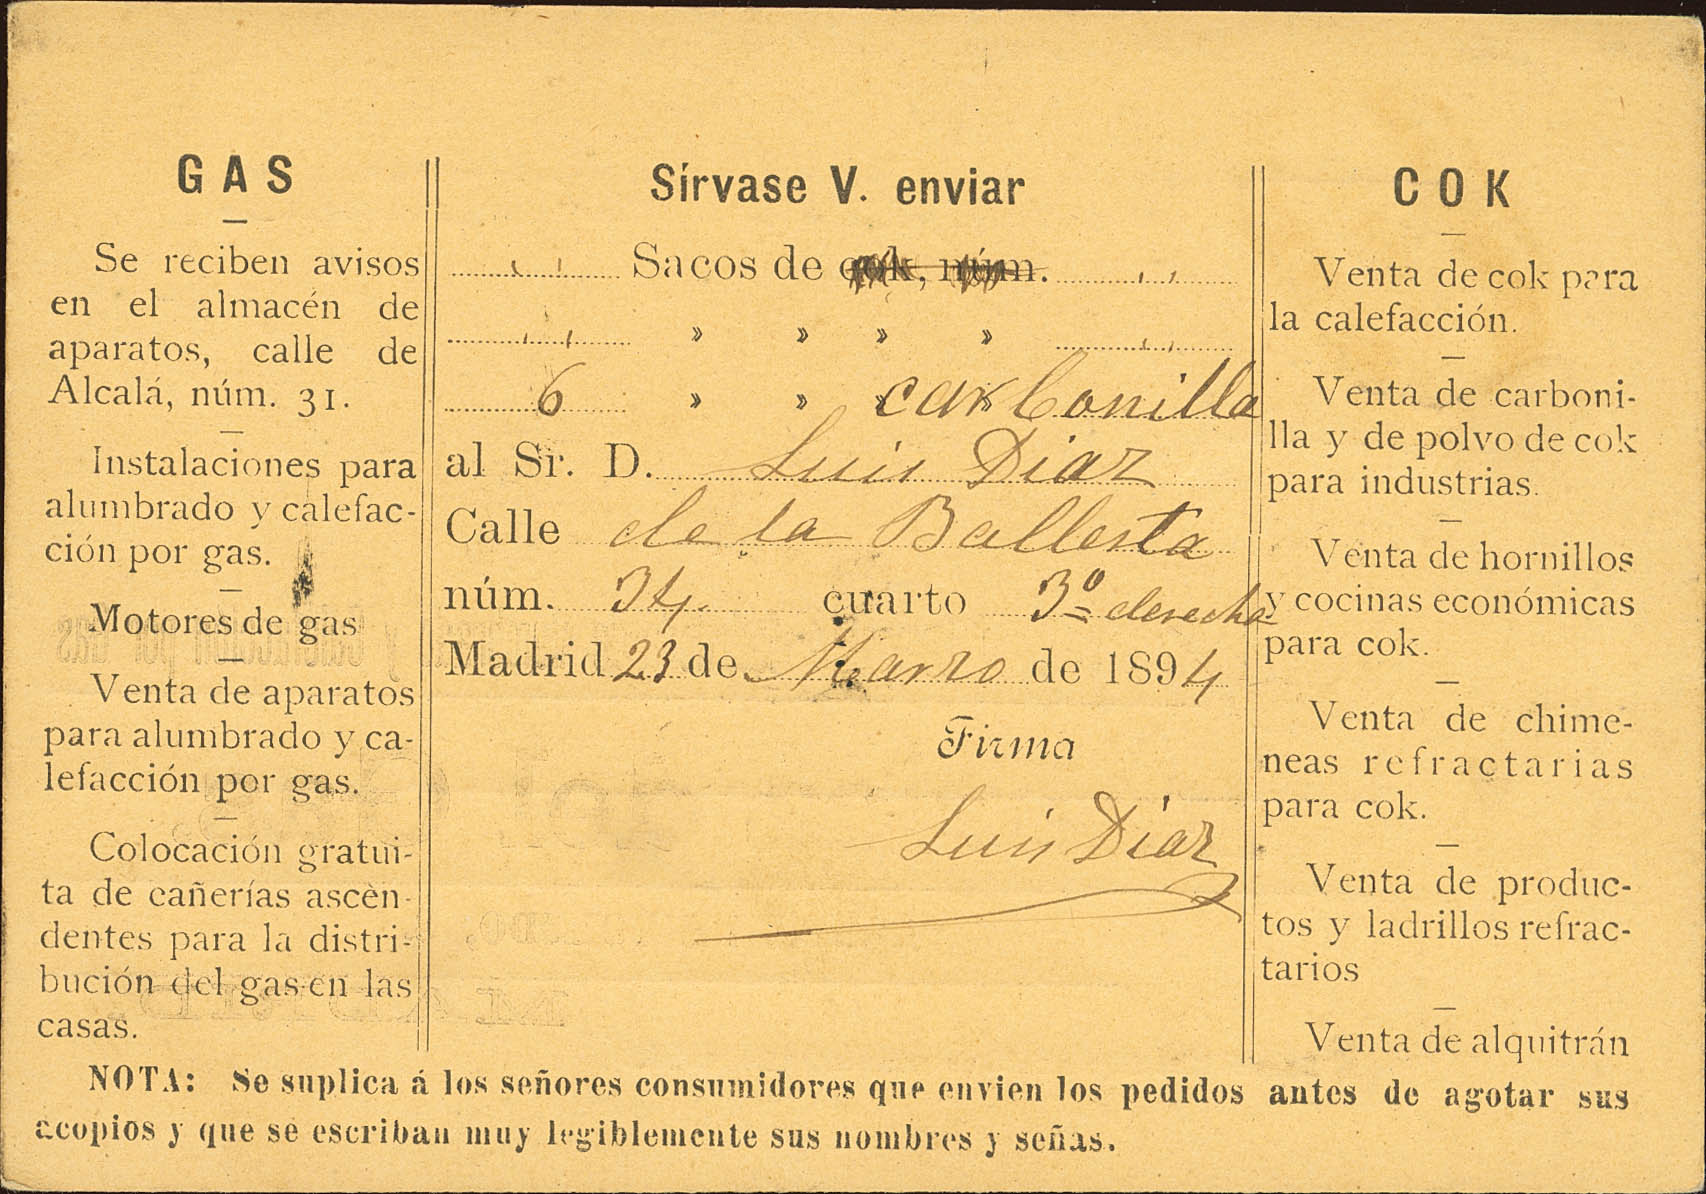 GAS
Se reciben avisos
en el almacén de
aparatos, calle de
Alcalá, núm. 31.
Instalaciones para
alumbrado y calefac-
ción por gas.
Motores de gas
Venta de aparatos
para alumbrado y ca-
lefacción por gas.
Colocación gratui-
ta de cañerías ascen-
dentes para la distri-
bución del gas en las
casas.
Sírvase V. enviar
Sacos de cok, núm.
» » » »
6 » » » » carbonilla
al Sr. D. Luis Diaz
Calle de la Ballesta
núm. 34. cuarto 3º derecha
Madrid 23 de Marzo de 1894
Firma
Luis Diaz
COK
Venta de cok para
la calefacción.
Venta de carboni-
lla y de polvo de cok
para industrias.
Venta de hornillos
y cocinas económicas
para cok.
Venta de chime-
neas refractarias
para cok.
Venta de produc-
tos y ladrillos refrac-
tarios
Venta de alquitrán
NOTA: Se suplica á los señores consumidores que envien los pedidos antes de agotar sus
acopios y que se escriban muy legiblemente sus nombres y señas.